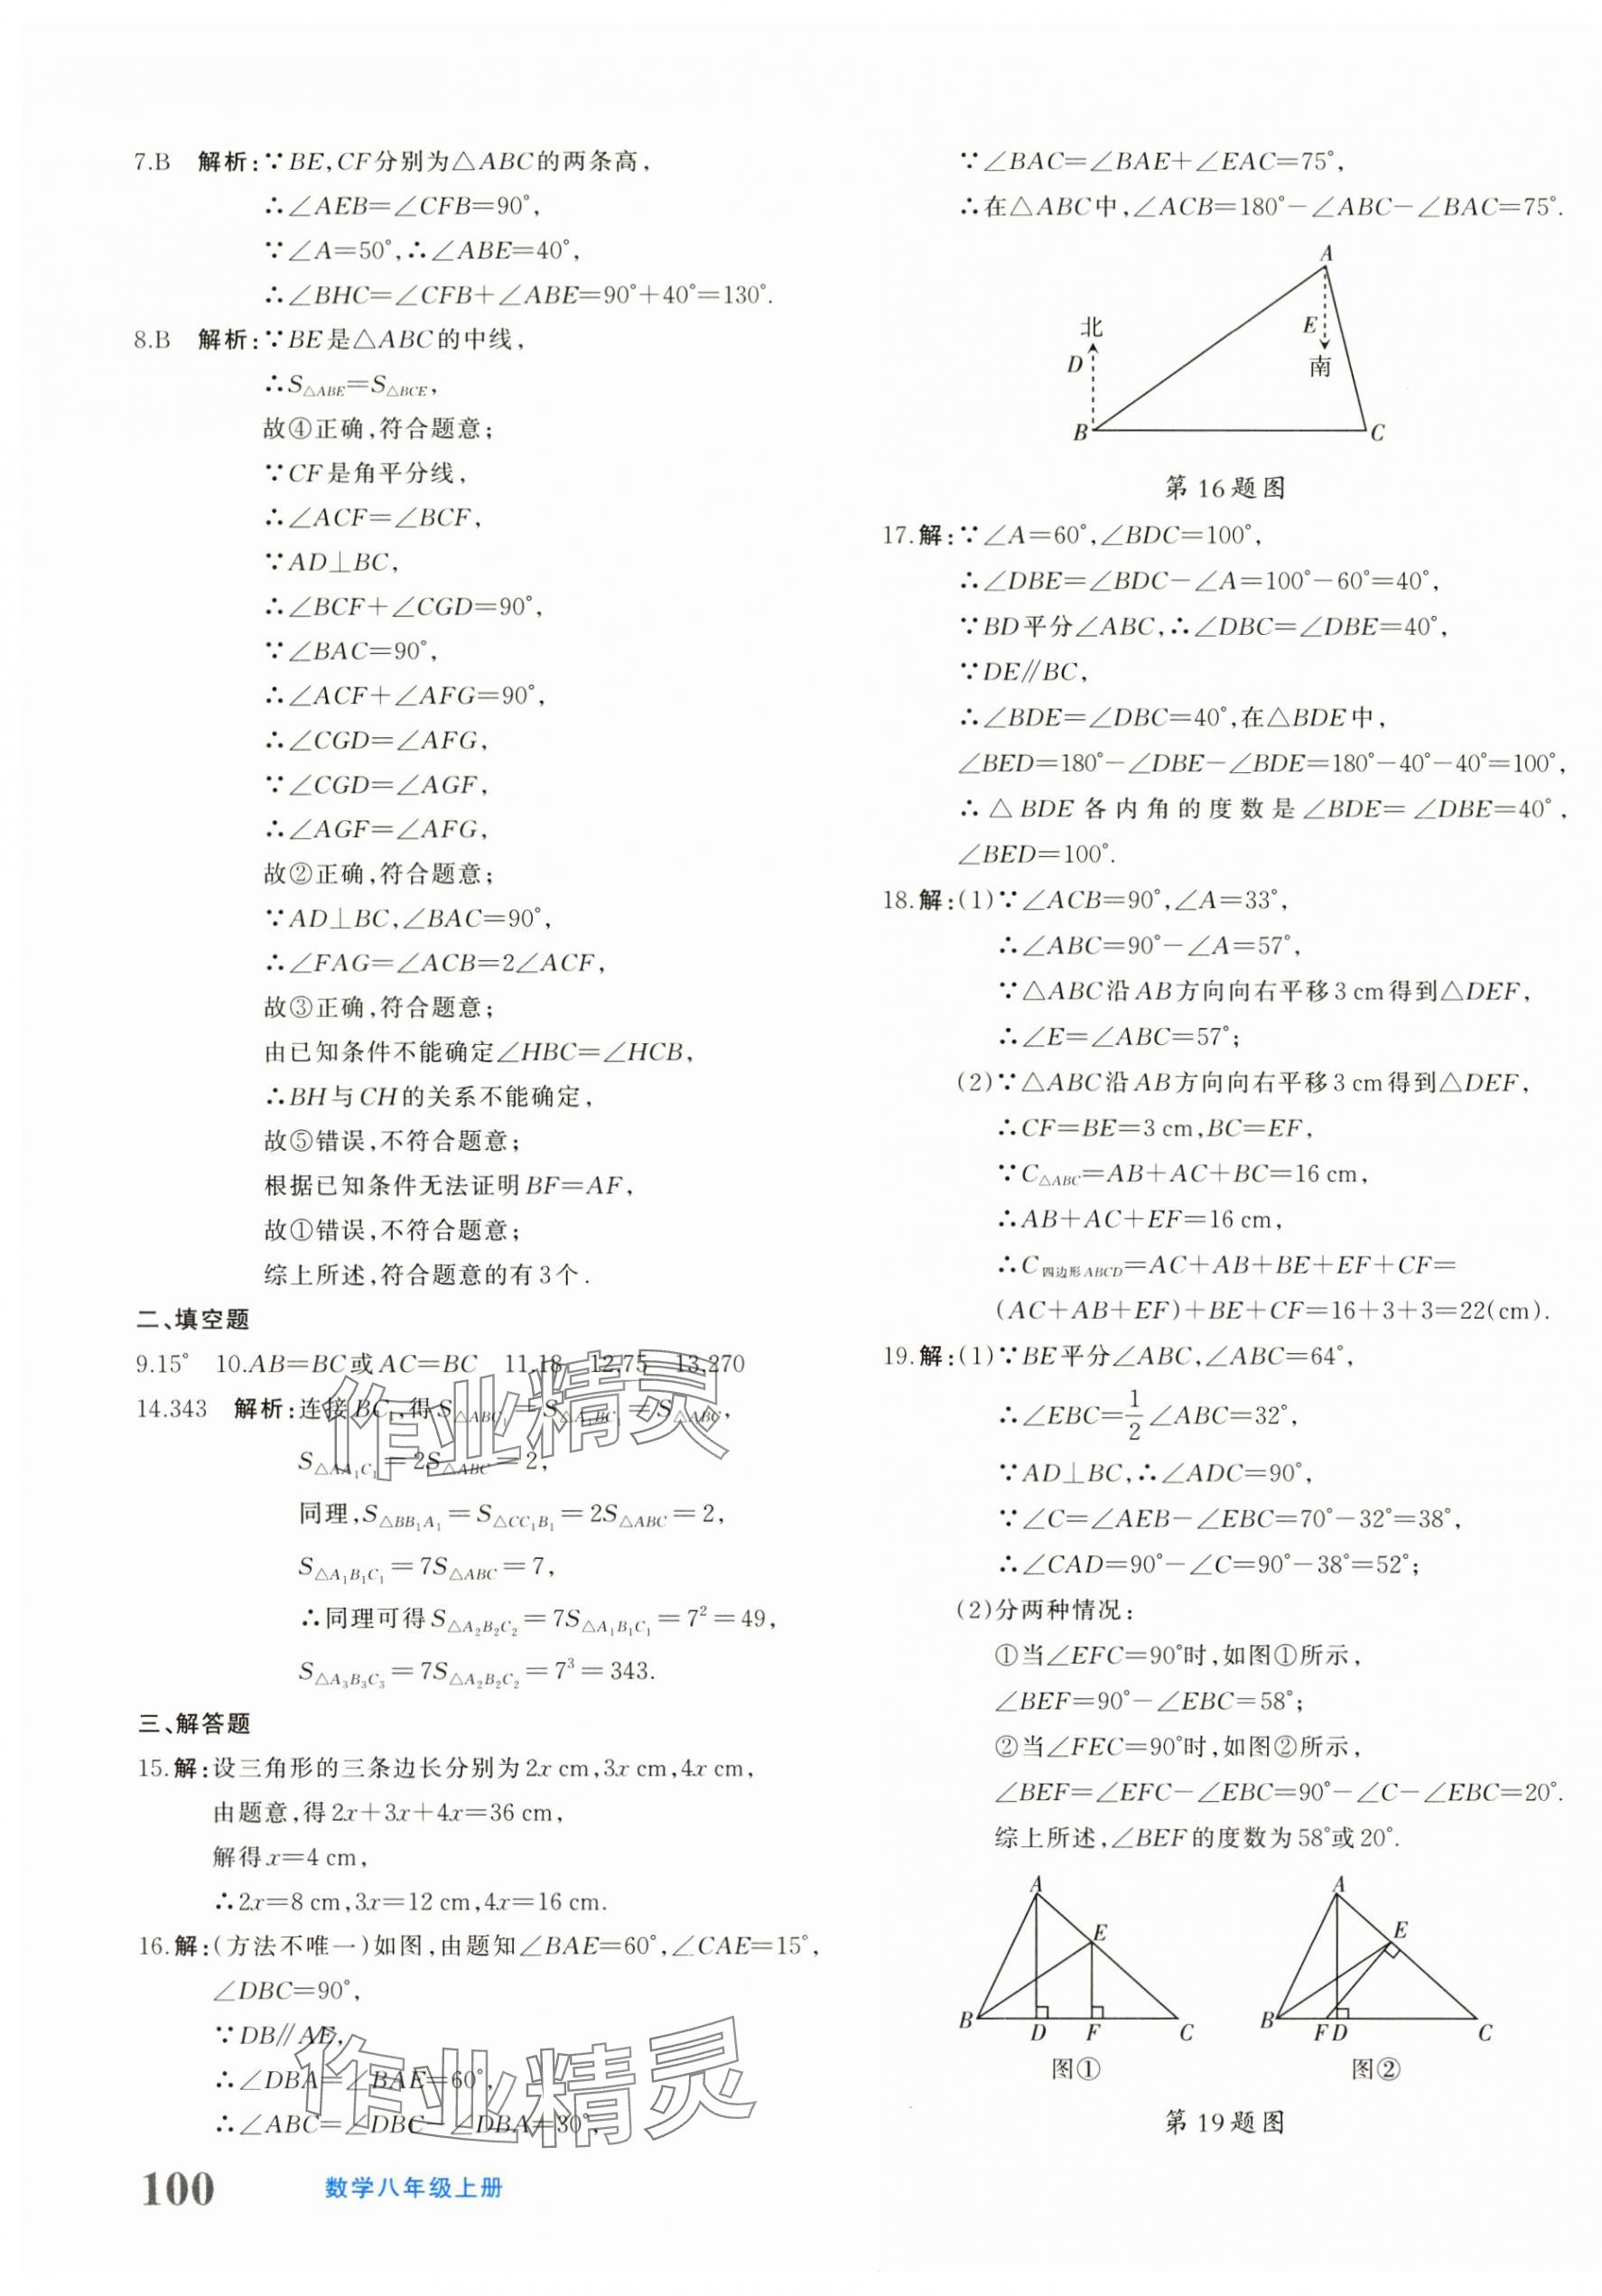 7.B 解析:∵BE,CF分别为△ABC的两条高,
∴∠AEB=∠CFB=90°,
∵∠A=50°,∴∠ABE=40°,
∴∠BHC=∠CFB+∠ABE=90°+40°=130°.
8.B 解析:∵BE是△ABC的中线,
∴S△ABE=S△BCE,
故④正确,符合题意;
∵CF是角平分线,
∴∠ACF=∠BCF,
∵AD⊥BC,
∴∠BCF+∠CGD=90°,
∵∠BAC=90°,
∴∠ACF+∠AFG=90°,
∴∠CGD=∠AFG,
∵∠CGD=∠AGF,
∴∠AGF=∠AFG,
故②正确,符合题意;
∵AD⊥BC,∠BAC=90°,
∴∠FAG=∠ACB=2∠ACF,
故③正确,符合题意;
由已知条件不能确定∠HBC=∠HCB,
∴BH与CH的关系不能确定,
故⑤错误,不符合题意;
根据已知条件无法证明BF=AF,
故①错误,不符合题意;
综上所述,符合题意的有3个.
二、填空题
9.15° 10.AB=BC或AC=BC 11.18 12.75 13.270
14.343 解析:连接BC₁,得S△ABC₁=S△A₁BC₁=S△ABC,
S△AA₁C₁=2S△ABC=2,
同理,S△BB₁A₁=S△CC₁B₁=2S△ABC=2,
S△A₁B₁C₁=7S△ABC=7,
∴同理可得S△A₂B₂C₂=7S△A₁B₁C₁=7²=49,
S△A₃B₃C₃=7S△A₂B₂C₂=7³=343.
三、解答题
15.解:设三角形的三条边长分别为2x cm,3x cm,4x cm,
由题意,得2x+3x+4x=36 cm,
解得x=4 cm,
∴2x=8 cm,3x=12 cm,4x=16 cm.
16.解:(方法不唯一)如图,由题知∠BAE=60°,∠CAE=15°,
∠DBC=90°,
∵DB∥AE,
∴∠DBA=∠BAE=60°,
∴∠ABC=∠DBC-∠DBA=30°,
100 数学八年级上册
∵∠BAC=∠BAE+∠EAC=75°,
∴在△ABC中,∠ACB=180°-∠ABC-∠BAC=75°.
A
北
E
D
南
B C
第16题图
17.解:∵∠A=60°,∠BDC=100°,
∴∠DBE=∠BDC-∠A=100°-60°=40°,
∵BD平分∠ABC,∴∠DBC=∠DBE=40°,
∵DE∥BC,
∴∠BDE=∠DBC=40°,在△BDE中,
∠BED=180°-∠DBE-∠BDE=180°-40°-40°=100°,
∴△BDE各内角的度数是∠BDE=∠DBE=40°,
∠BED=100°.
18.解:(1)∵∠ACB=90°,∠A=33°,
∴∠ABC=90°-∠A=57°,
∵△ABC沿AB方向向右平移3 cm得到△DEF,
∴∠E=∠ABC=57°;
(2)∵△ABC沿AB方向向右平移3 cm得到△DEF,
∴CF=BE=3 cm,BC=EF,
∵C△ABC=AB+AC+BC=16 cm,
∴AB+AC+EF=16 cm,
∴C四边形ABCD=AC+AB+BE+EF+CF=
(AC+AB+EF)+BE+CF=16+3+3=22(cm).
19.解:(1)∵BE平分∠ABC,∠ABC=64°,
∴∠EBC=1/2∠ABC=32°,
∵AD⊥BC,∴∠ADC=90°,
∵∠C=∠AEB-∠EBC=70°-32°=38°,
∴∠CAD=90°-∠C=90°-38°=52°;
(2)分两种情况:
①当∠EFC=90°时,如图①所示,
∠BEF=90°-∠EBC=58°;
②当∠FEC=90°时,如图②所示,
∠BEF=∠EFC-∠EBC=90°-∠C-∠EBC=20°.
综上所述,∠BEF的度数为58°或20°.
A A
E E
B D F C B F D C
图① 图②
第19题图
作业精灵
作业精灵